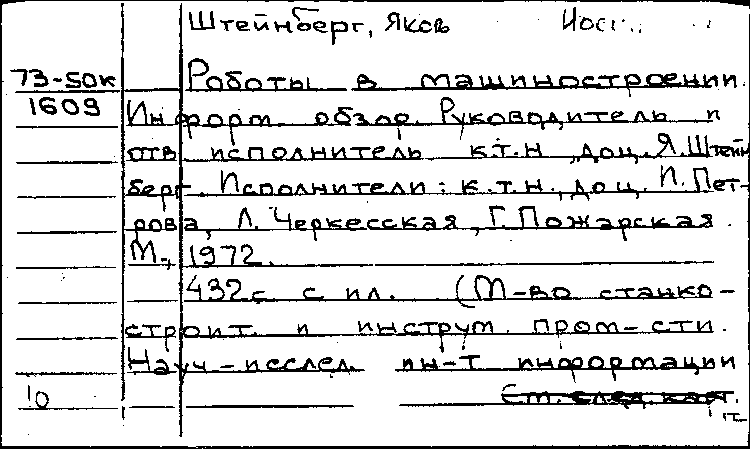 Штейнберг, Яков
73-50к
1609
Роботы в машиностроении.
Информ. обзор. Руководитель и
отв исполнитель к.т.н., доц. Я. Штейн
берг. Исполнители: к.т.н., доц. И. Пет-
рова, Л. Черкесская, Г. Пожарская.
М., 1972.
432 с с ил. (М-во станко-
строит. и инструм. пром-сти.
Науч-исслед. ин-т информации
См. след. карт.
10